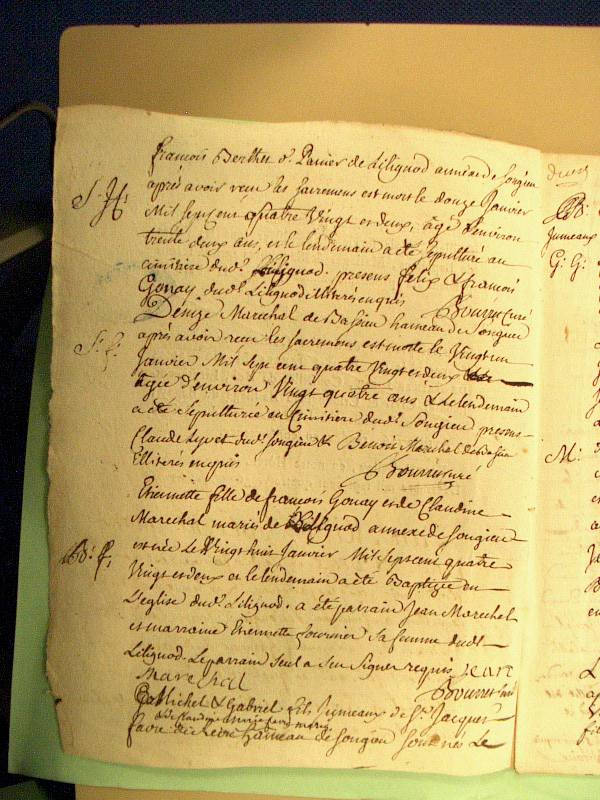 françois Berthet d. Panier de Lilignod annexe de Songieu
S. h. après avoir reçu les sacremens est mort le douze Janvier
Mil sept cent quatre vingt et deux, âgé d'environ
trente deux ans, et le lendemain a été sepulturé au
cimitiere dud. Lilignod. presens felix & françois
Gonay dud. Lilignod illiterés enquis Curé
Denize Marechal de Bassieu hameau de Songieu
S. f. après avoir reçu les sacremens est morte le vingt un
Janvier Mil sept cent quatre vingt et deux
agée d'environ vingt quatre ans & le lendemain
a été sepulturée au Cimitiere dud. Songieu presens
Claude dud. Songieu & Benoit Marechal de Bassieu
illiterés enquis curé
Etiennette fille de françois Gonay et de Claudine
Marechal mariés de Lilignod annexe de Songieu
B. f. est née le vingt huit Janvier Mil sept cent quatre
vingt et deux et le lendemain a été Baptizée en
L'eglise dud. Lilignod. a été parrain Jean Marechal
et marraine Etiennette fournier sa femme dud.
Lilignod. Le parrain seul a seu signer requis Jean
Marechal curé
Michel & Gabriel fils Jumeaux de Sr. Jacques
favre hameau de Songieu sont nés le
B.
Jumeaux
G. G.
M.